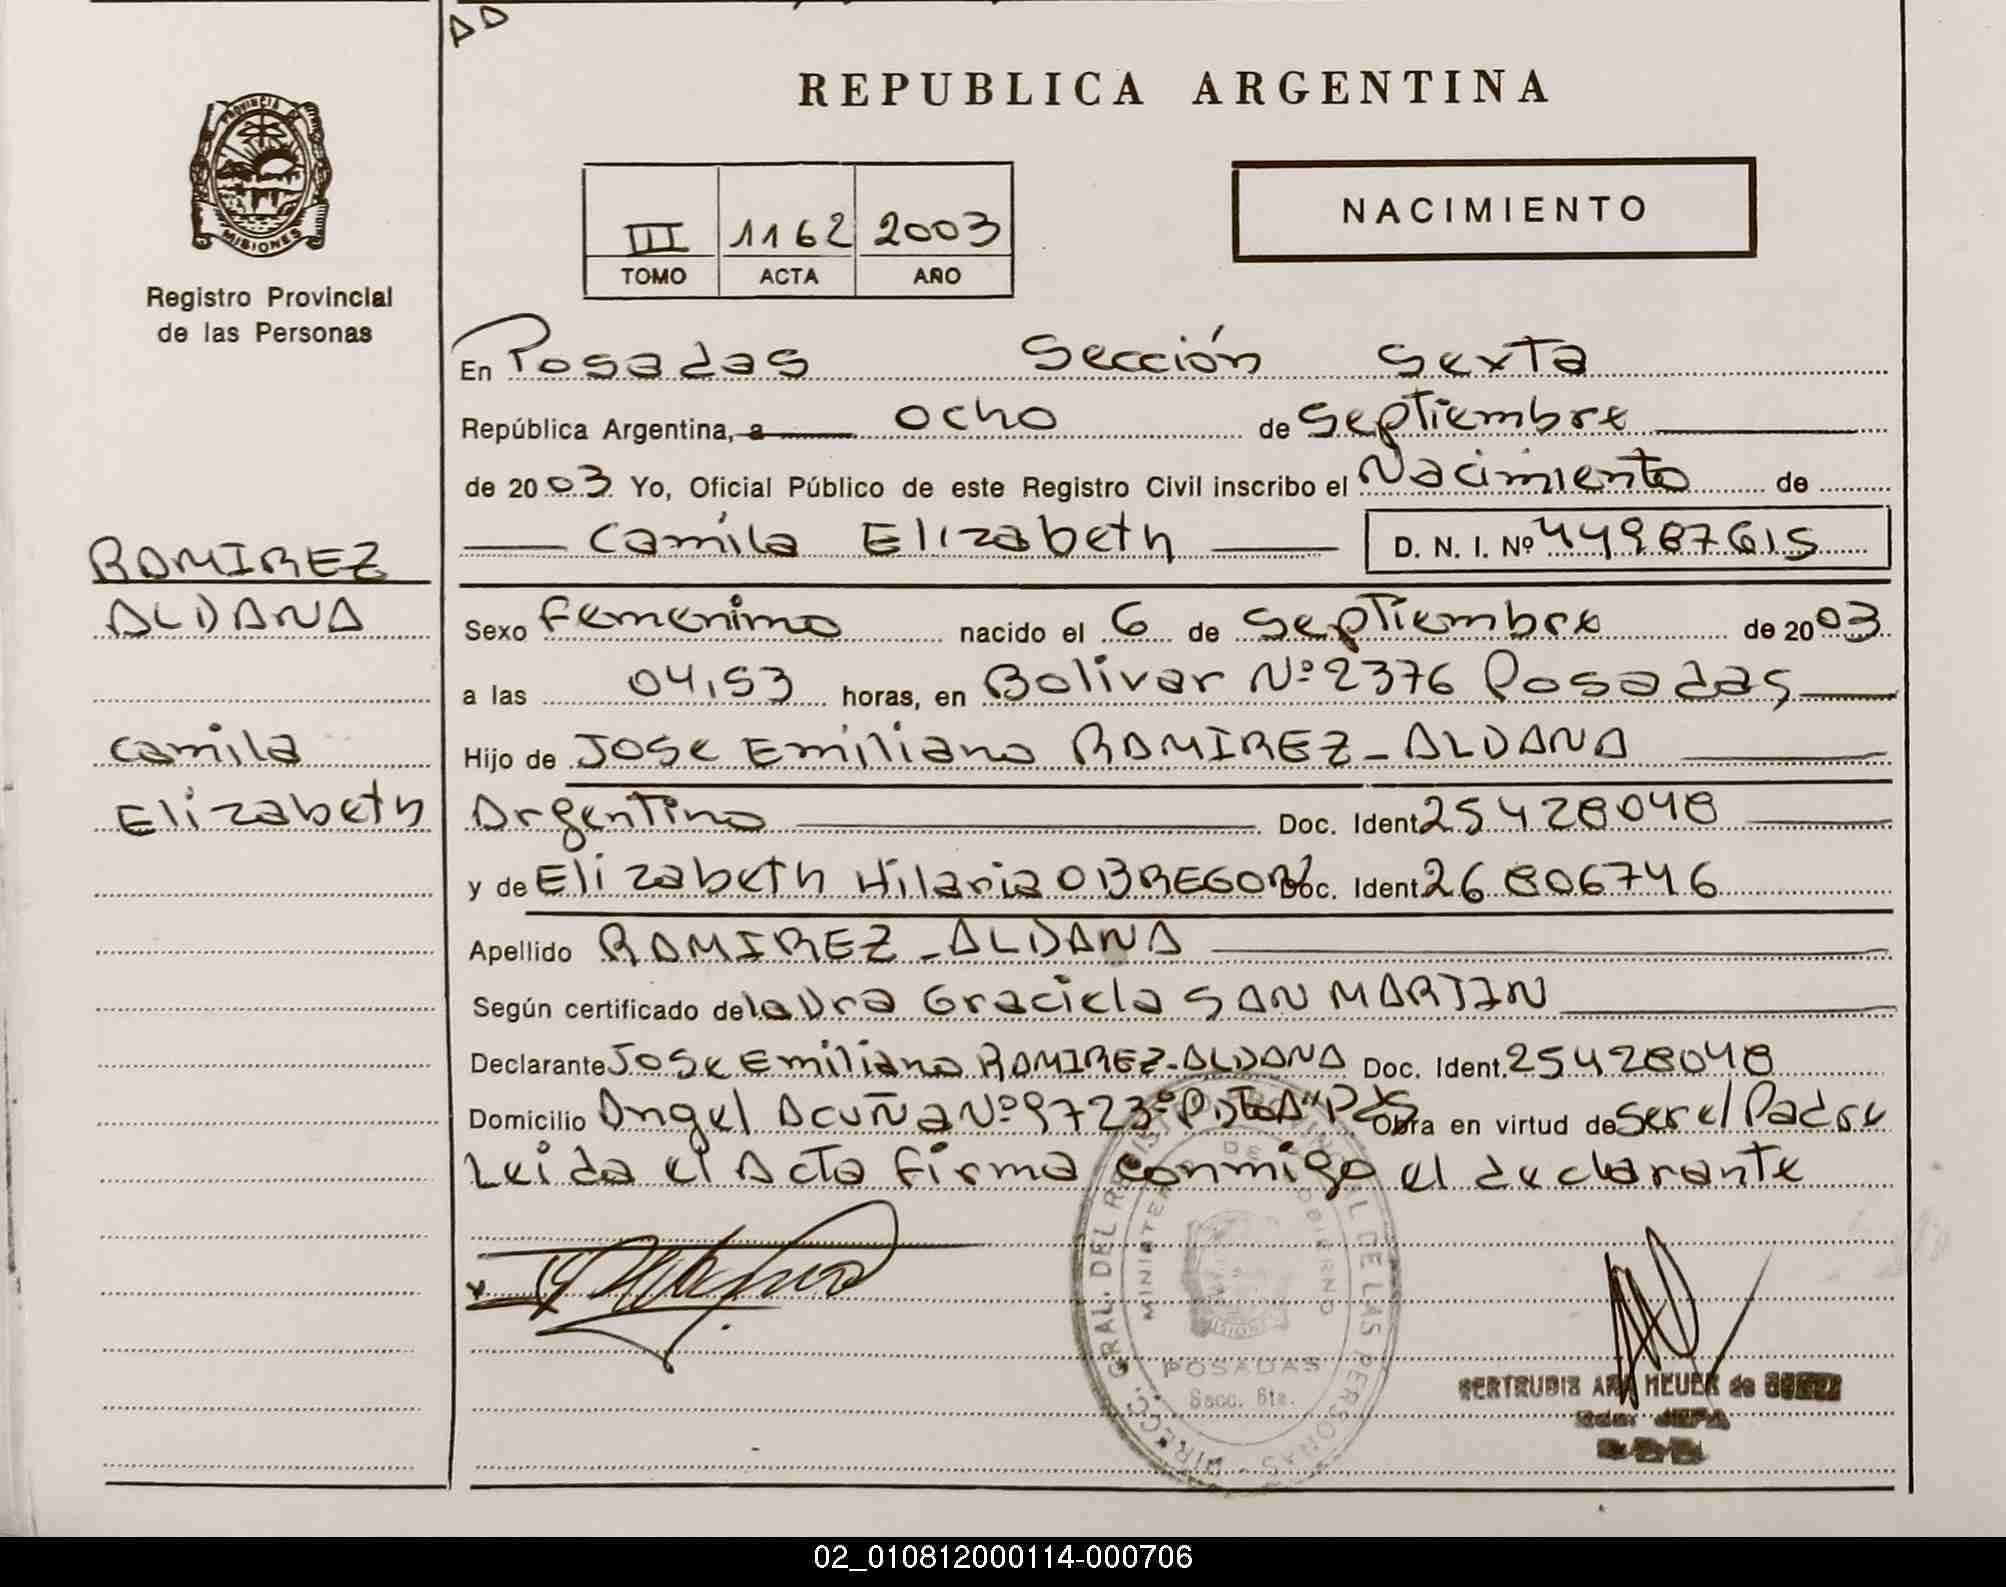 REPUBLICA ARGENTINA
PROVINCIA DE
MISIONES
Registro Provincial
de las Personas
III 1162 2003
TOMO ACTA AÑO
NACIMIENTO
En Posadas Sección Sexta
República Argentina, a ocho de Septiembre
de 2003 Yo, Oficial Público de este Registro Civil inscribo el Nacimiento de
Camila Elizabeth D. N. I. Nº 44987615
RAMIREZ
ALDANA
Camila
Elizabeth
Sexo Femenino nacido el 6 de Septiembre de 2003
a las 04,53 horas, en Bolivar Nº 2376 Posadas
Hijo de Jose Emiliano RAMIREZ-ALDANA
Argentino Doc. Ident. 25428048
y de Elizabeth Hilaria OBREGON Doc. Ident. 26806746
Apellido RAMIREZ-ALDANA
Según certificado de la Dra Graciela SAN MARTIN
Declarante Jose Emiliano RAMIREZ-ALDANA Doc. Ident. 25428048
Domicilio Angel Acuña Nº 972 3º P Dto "A" Pdas Obra en virtud de ser el Padre
Leida el Acta Firma conmigo el declarante
DIRECC. GRAL. DEL REGISTRO PROVINCIAL DE LAS PERSONAS
MINISTERIO DE GOBIERNO
POSADAS
Secc. 6ta.
GERTRUDIS ANA HEUER de
JEFA
02_010812000114-000706